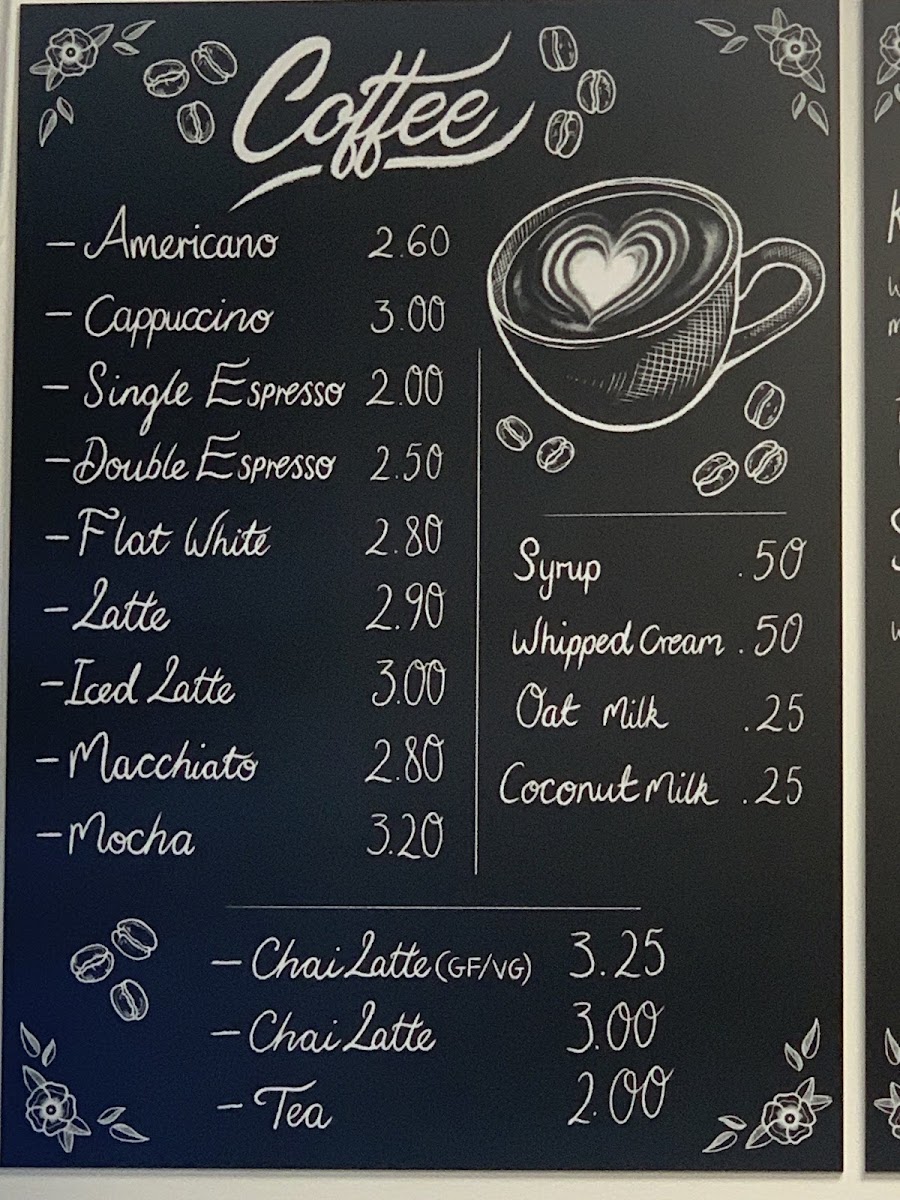 Coffee
– Americano 2.60
– Cappuccino 3.00
– Single Espresso 2.00
– Double Espresso 2.50
– Flat White 2.80
– Latte 2.90
– Iced Latte 3.00
– Macchiato 2.80
– Mocha 3.20
Syrup .50
Whipped Cream .50
Oat Milk .25
Coconut Milk .25
– Chai Latte (GF/VG) 3.25
– Chai Latte 3.00
– Tea 2.00